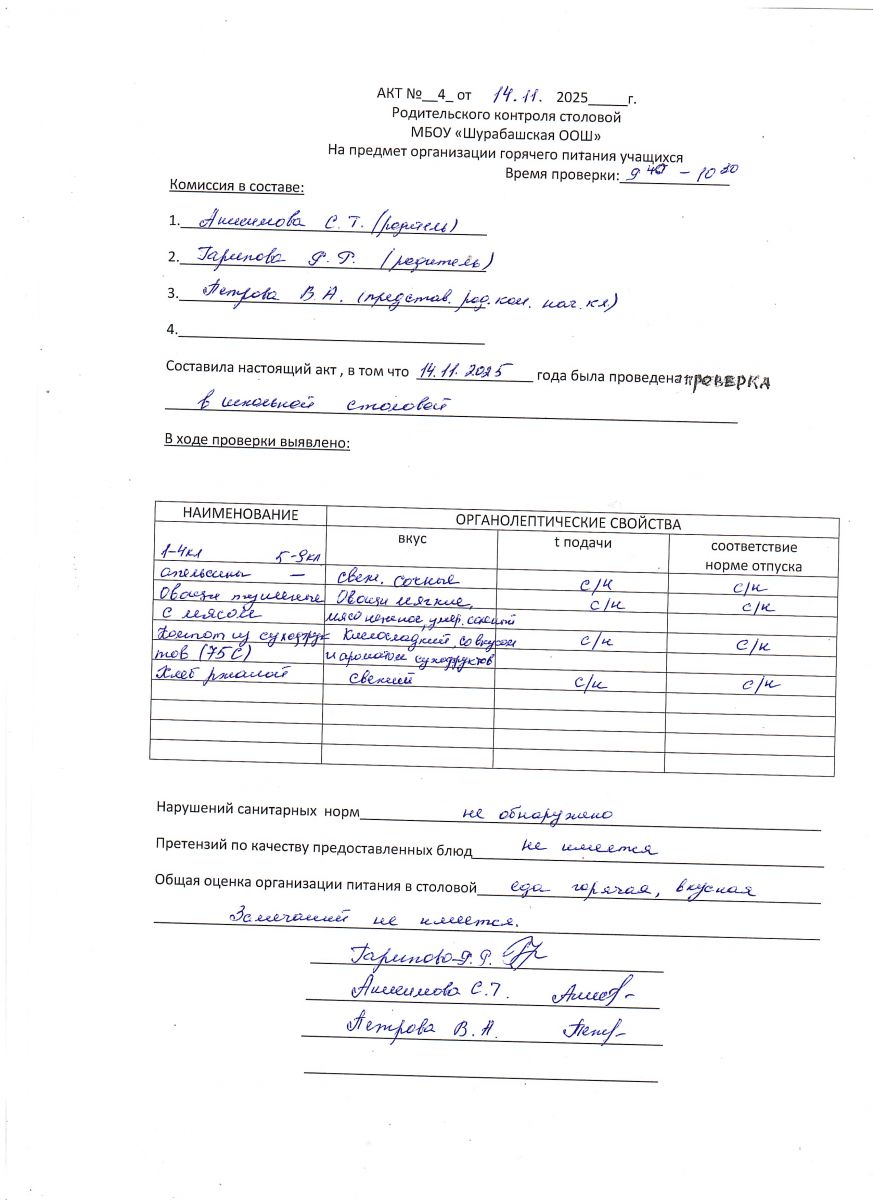 АКТ №__4_ от 14.11. 2025_____г.
Родительского контроля столовой
МБОУ «Шурабашская ООШ»
На предмет организации горячего питания учащихся
Время проверки: 9 40 – 10 20
Комиссия в составе:
1. Анисимова С. Т. (родитель)
2. Гарипова Р. Р. (родитель)
3. Петрова В.А. (представ. род. ком. нач. кл)
4.
Составила настоящий акт , в том что 14.11.2025 года была проведена ПРОВЕРКА
в школьной столовой
В ходе проверки выявлено:
НАИМЕНОВАНИЕ ОРГАНОЛЕПТИЧЕСКИЕ СВОЙСТВА
1-4кл 5-9кл вкус t подачи соответствие
норме отпуска
апельсины — свеж. сочные с/н с/н
Овощи тушенные Овощи мягкие, с/н с/н
с мясом мясо нежное, умер. соленый
Компот из сухофрук Кислосладкий, со вкусом с/н с/н
тов (75С) и ароматом сухофруктов
Хлеб ржаной свежий с/н с/н
Нарушений санитарных норм не обнаружено
Претензий по качеству предоставленных блюд не имеется
Общая оценка организации питания в столовой еда горячая, вкусная
Замечаний не имеется.
Гарипова Р. Р.
Анисимова С.Т.
Петрова В.А.